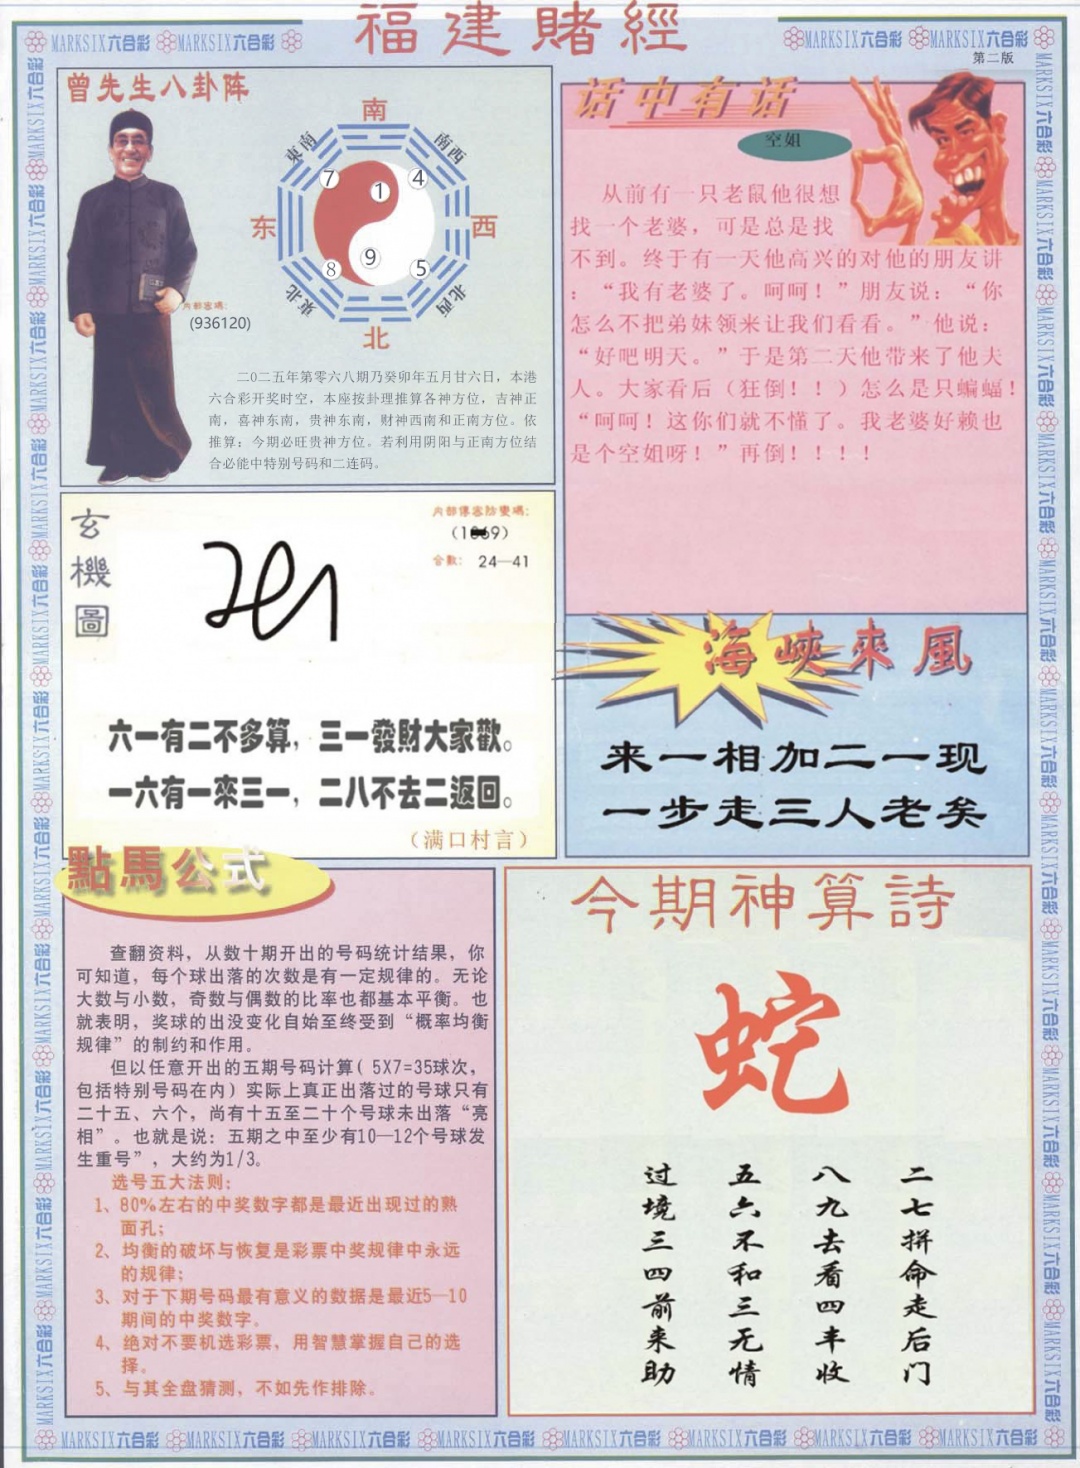 福建賭經
MARKSIX六合彩 MARKSIX六合彩
MARKSIX六合彩 MARKSIX六合彩
第二版
曾先生八卦阵
南
東南
南西
东
西
東北
北西
北
7
1
4
9
8
5
内部密碼:
(936120)
二0二五年第零六八期乃癸卯年五月廿六日，本港
六合彩开奖时空，本座按卦理推算各神方位，吉神正
南，喜神东南，贵神东南，财神西南和正南方位。依
推算：今期必旺贵神方位。若利用阴阳与正南方位结
合必能中特别号码和二连码。
话中有话
空姐
从前有一只老鼠他很想
找一个老婆，可是总是找
不到。终于有一天他高兴的对他的朋友讲
：“我有老婆了。呵呵！”朋友说：“你
怎么不把弟妹领来让我们看看。”他说：
“好吧明天。”于是第二天他带来了他夫
人。大家看后（狂倒！！）怎么是只蝙蝠！
“呵呵！这你们就不懂了。我老婆好赖也
是个空姐呀！”再倒！！！！
玄機圖
内部傳密防變碼:
合數: 24—41
六一有二不多算，三一發財大家歡。
一六有一來三一，二八不去二返回。
（满口村言）
海峽來風
来一相加二一现
一步走三人老矣
點馬公式
查翻资料，从数十期开出的号码统计结果，你
可知道，每个球出落的次数是有一定规律的。无论
大数与小数，奇数与偶数的比率也都基本平衡。也
就表明，奖球的出没变化自始至终受到“概率均衡
规律”的制约和作用。
但以任意开出的五期号码计算( 5X7=35球次，
包括特别号码在内) 实际上真正出落过的号球只有
二十五、六个，尚有十五至二十个号球未出落“亮
相”。也就是说：五期之中至少有10—12个号球发
生重号”，大约为1/3。
选号五大法则:
1、80%左右的中奖数字都是最近出现过的熟
面孔;
2、均衡的破坏与恢复是彩票中奖规律中永远
的规律;
3、对于下期号码最有意义的数据是最近5—10
期间的中奖数字。
4、绝对不要机选彩票，用智慧掌握自己的选
择。
5、与其全盘猜测，不如先作排除。
今期神算詩
蛇
二七拼命走后门
八九去看四丰收
五六不和三无情
过境三四前来助
MARKSIX六合彩 MARKSIX六合彩 MARKSIX六合彩 MARKSIX六合彩 MARKSIX六合彩 MARKSIX六合彩 MARKSIX六合彩 MARKSIX六合彩